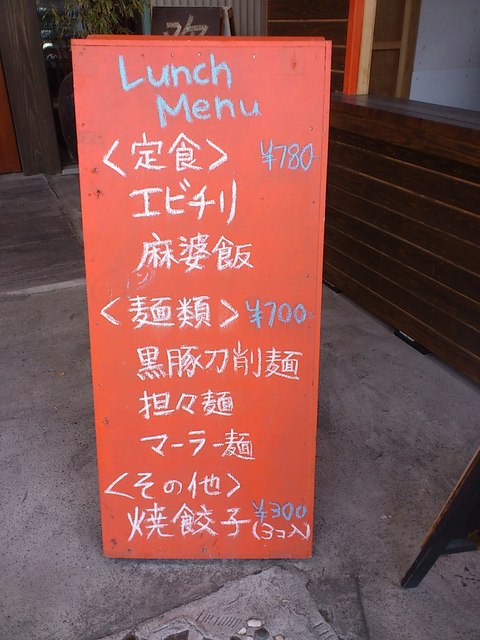 Lunch
Menu
<定食> ¥780
エビチリ
麻婆飯
<麺類> ¥700
黒豚刀削麺
担々麺
マーラー麺
<その他>
焼餃子 ¥300
(3コ入)